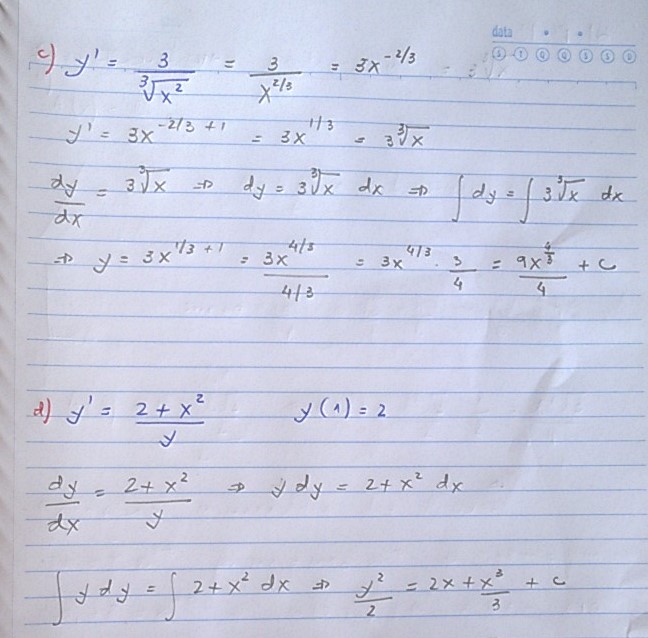 data
c) y' = 3/∛x² = 3/x^(2/3) = 3x^(-2/3)
y' = 3x^(-2/3 + 1) = 3x^(1/3) = 3∛x
dy/dx = 3∛x ⇒ dy = 3∛x dx ⇒ ∫ dy = ∫ 3∛x dx
⇒ y = 3x^(1/3 + 1) = 3x^(4/3)/(4/3) = 3x^(4/3) · 3/4 = 9x^(4/3)/4 + C
d) y' = (2 + x²)/y y(1) = 2
dy/dx = (2 + x²)/y ⇒ y dy = 2 + x² dx
∫ y dy = ∫ 2 + x² dx ⇒ y²/2 = 2x + x³/3 + C